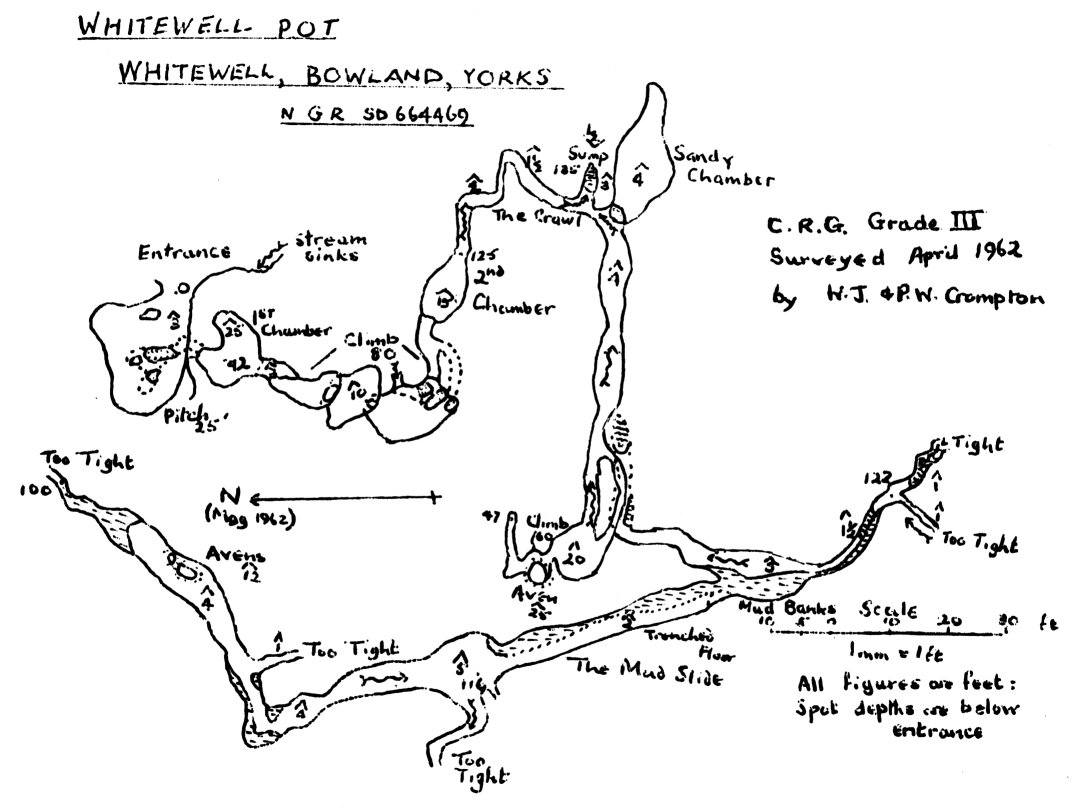 WHITEWELL POT
WHITEWELL, BOWLAND, YORKS
N G R SD 664469
Sump
135
Sandy
Chamber
4
3
1½
The Crawl
C.R.G. Grade III
Surveyed April 1962
by W.J. & P.W. Crompton
Entrance
Stream
Sinks
125
2nd
Chamber
15
1st
Chamber
25
42
Climb
80
10
Pitch
25
Too Tight
100
N
(Magg 1962)
Avens
12
4
1
Too Tight
4
5
116
Too
Tight
47
Climb
60
20
Aven
25
Tight
122
1
1
Too Tight
1½
3
Mud Banks
Trenched
Floor
The Mud Slide
Scale
10 5 0 10 20 30 ft
1mm = 1ft
All figures are feet:
Spot depths are below
entrance